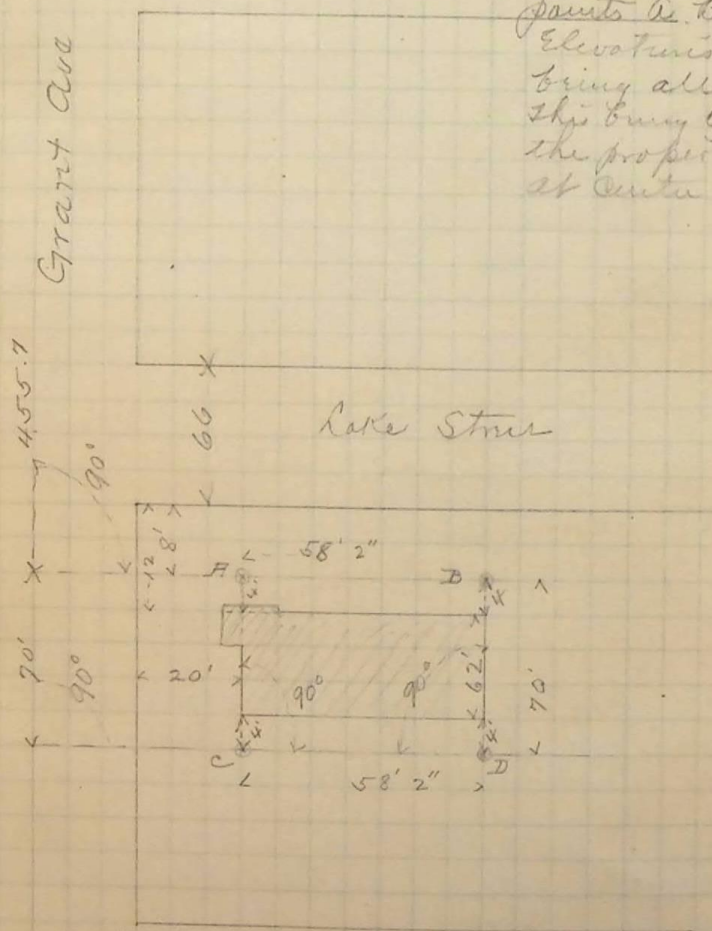 points as
Elevations
being all
this being
the proper
at Center
Grant Ave
455.7
66
Lake Street
90°
12
8'
58' 2"
A
B
4'
4'
70'
90°
20'
90°
90°
62'
70'
4'
4'
C
D
58' 2"